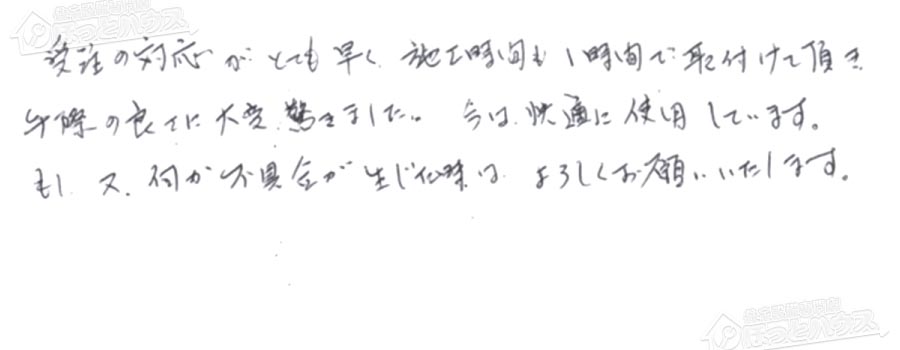 住宅設備専門店
ほっとハウス
受注の対応がとても早く、施工時間も1時間で取付けて頂き
手際の良さに大変驚きました。今は、快適に使用しています。
もし、又、何か不具合が生じた際は、よろしくお願いいたします。
住宅設備専門店
ほっとハウス